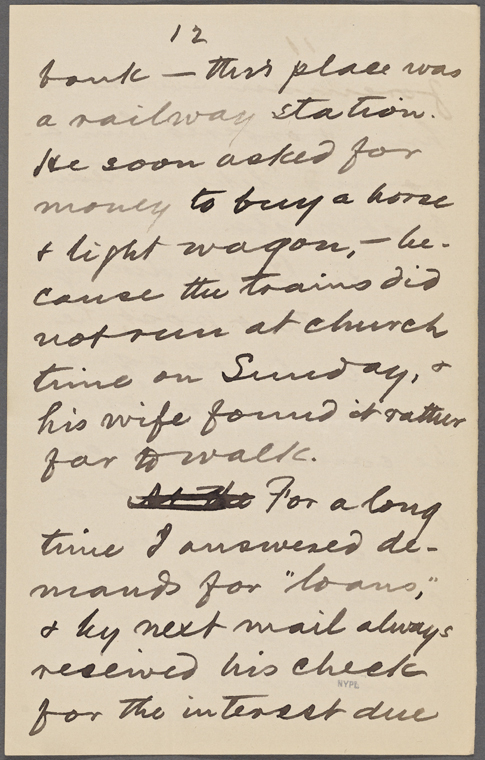 12
bank — this place was
a railway station.
He soon asked for
money to buy a horse
& light wagon, — be-
cause the trains did
not run at church
time on Sunday, &
his wife found it rather
far to walk.
At the For a long
time I answered de-
mands for "loans,"
& by next mail always
received his check
NYPL
for the interest due